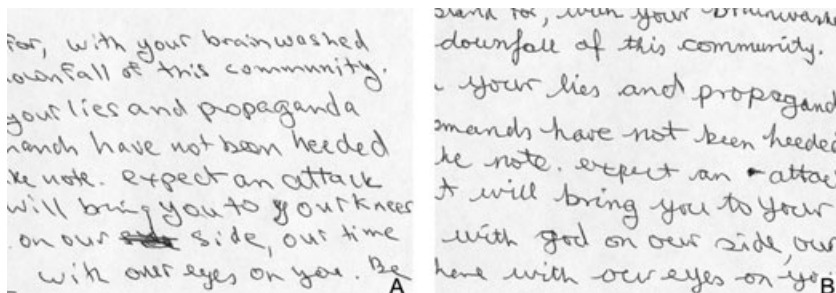 for, with your brainwashed
ownfall of this community.
your lies and propaganda
mands have not been heeded
ke note. expect an attack
will bring you to your knees
on our side, our time
with our eyes on you. Be
A
stand for, with your brainwashe
downfall of this community.
your lies and propagand
mands have not been heeded
ke note. expect an attac
t will bring you to your
with god on our side, our
here with our eyes on yo
B